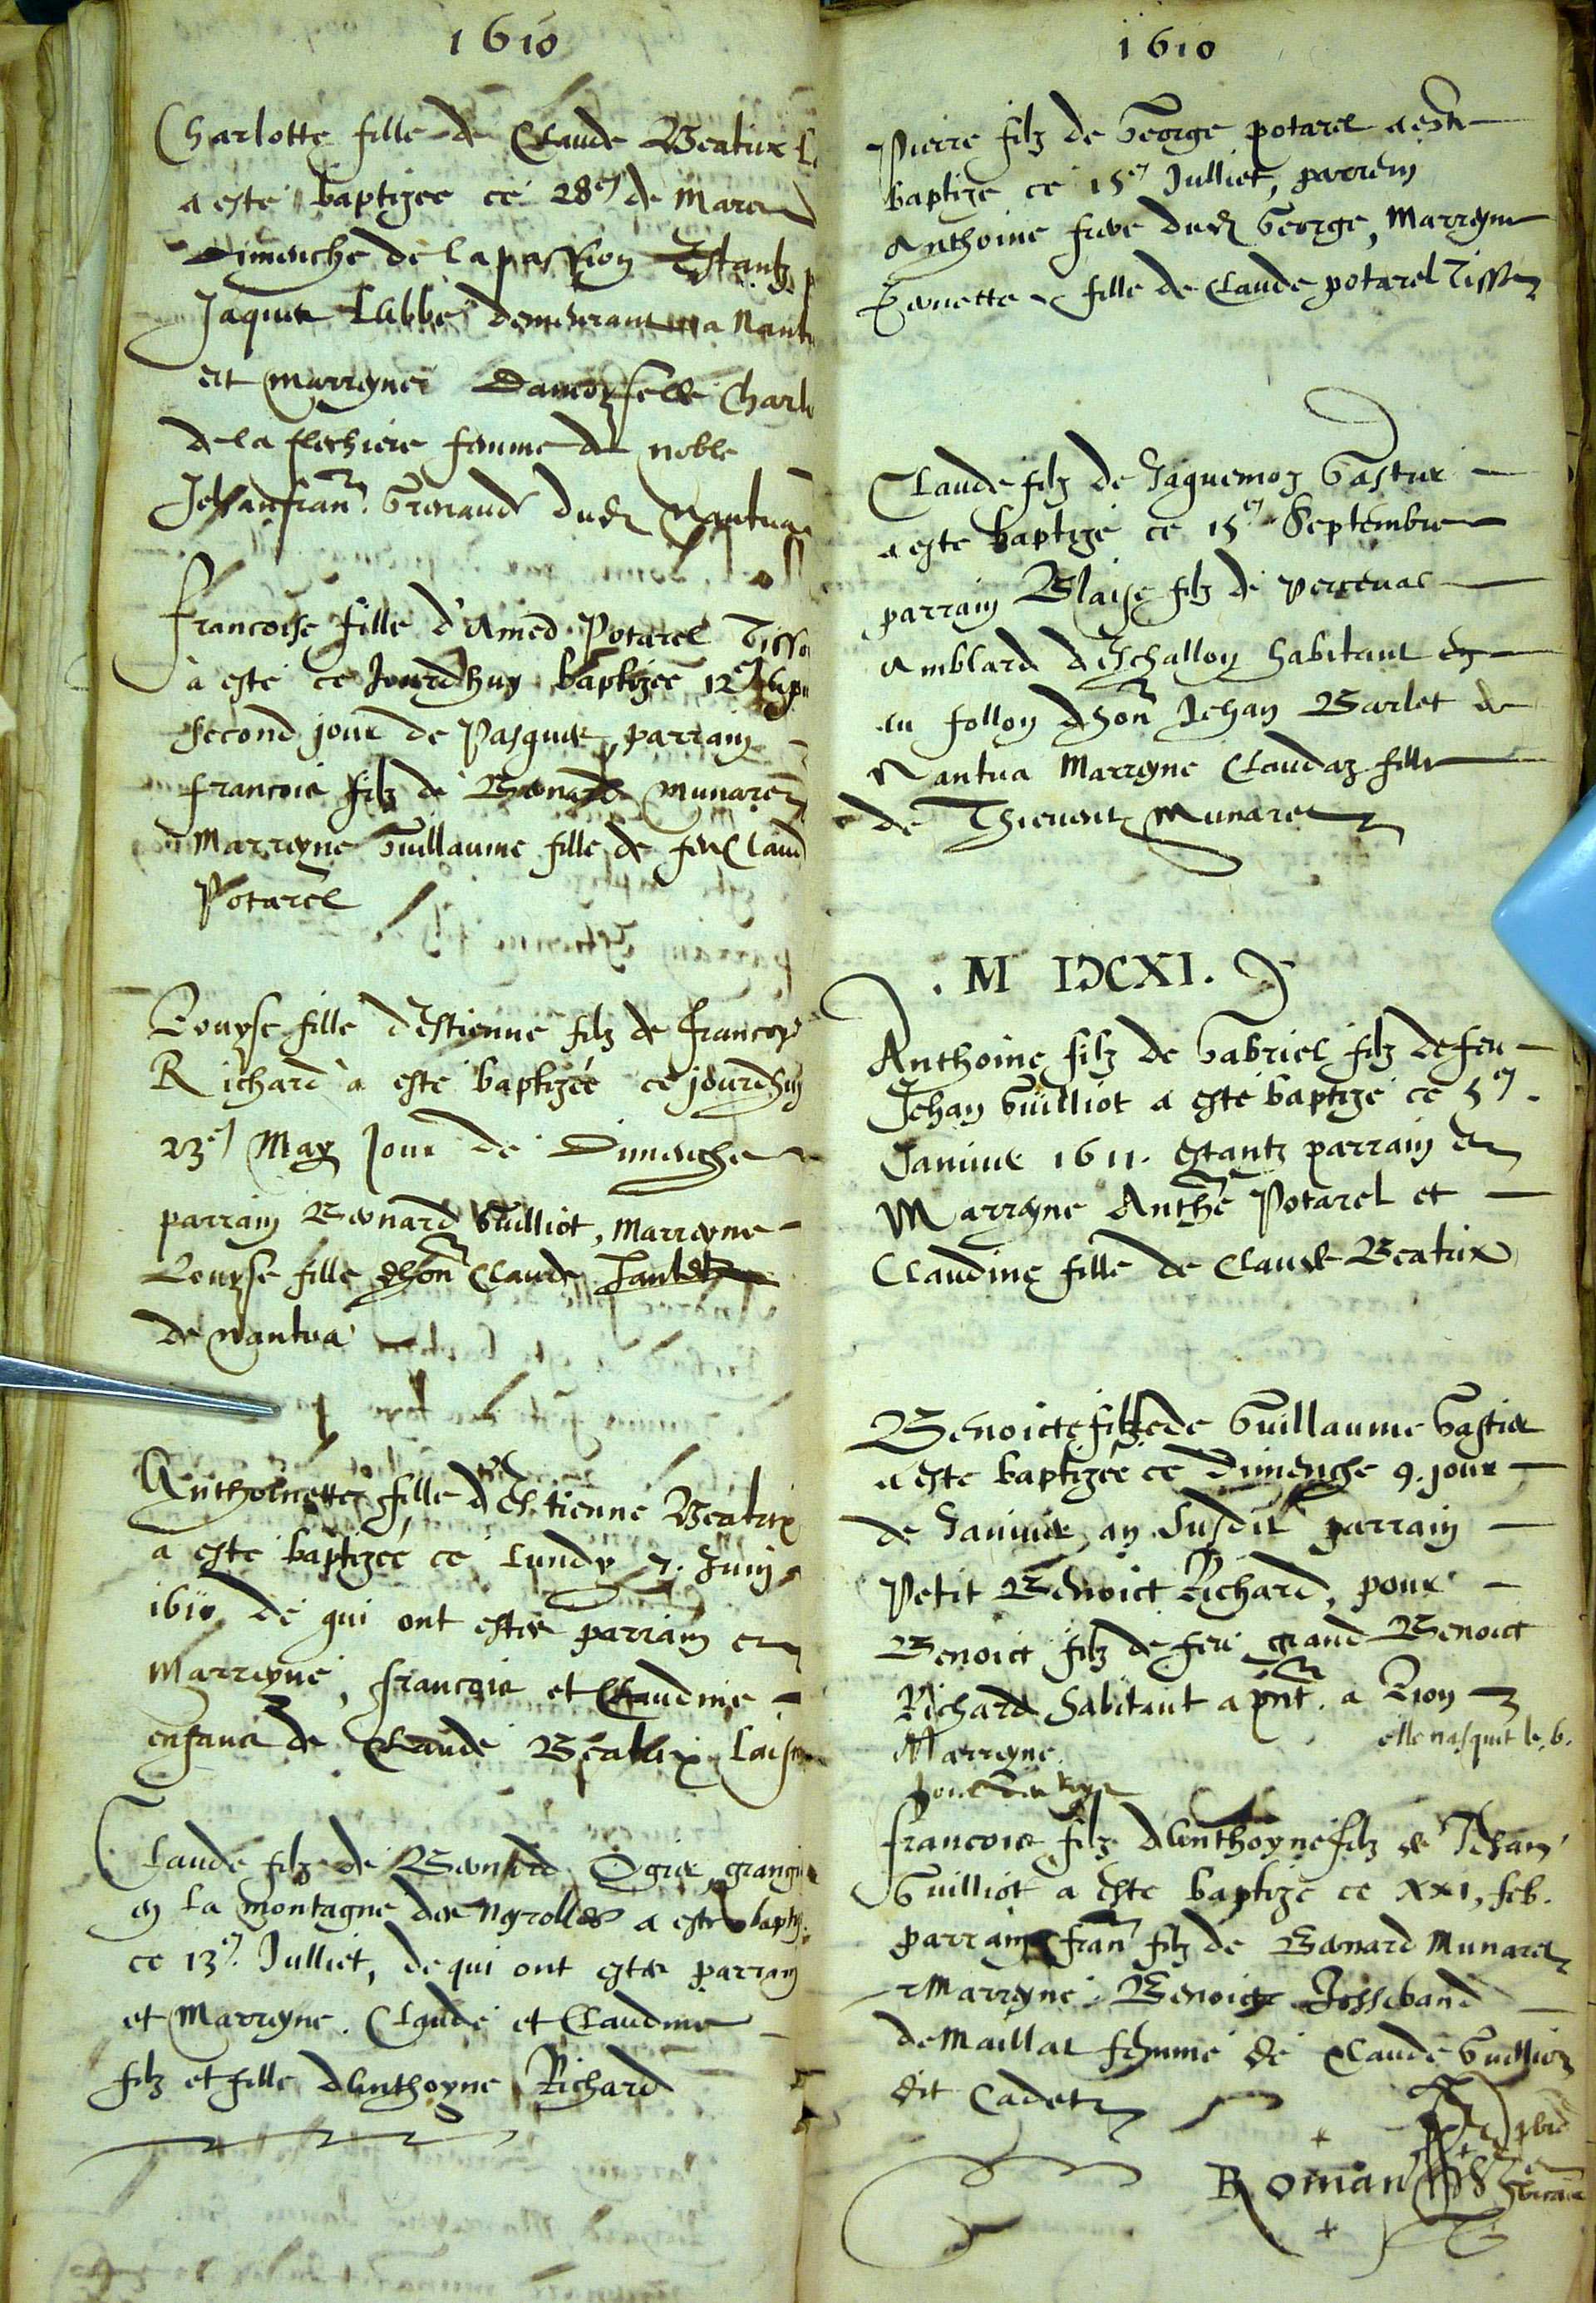 1610
Charlotte fille de Claude Beatrix
a este baptizee ce 28e de Mars
Dimenche de la passion Estantz
Jaques Labbe demeurant a Nantu
et marreyne Damoyselle Charl
de la flechiere femme de noble
Jehanfran. Grenaud dud Nantua
francoise fille d'Amed Potarel Tisso
à esté ce Jourdhuy baptizee 12e Ap
second jour de Pasques, parrain
francois filz de Bernard Munaret
Marreyne Guillaume fille de feu Claud
Potarel
Louyse fille d'Estienne filz de francoys
Richard à esté baptizée ce jourdhuy
23e May Jour de Dimenche
parrain Bernard Guilliot, Marreyne
Louyse fille dhon Claude
de Nantua
Anthoinette fille d'Estienne Beatrix
a esté baptizée ce Lundy 7. Juin
1610 de qui ont estes parrain et
Marreyne, francois et Claudine
enfans de Claude Beatrix Laisn
Claude filz de Bernard Ogier grangi
en la montagne des Nyrolles a este baptiz
ce 13e. Julliet, de qui ont estes parrain
et Marreyne. Claude et Claudine
filz et fille d'Anthoyne Richard
1610
Pierre filz de George potarel a este
baptize ce 15e Julliet, parrein
Anthoine frere dud George, Marreyne
Pernette fille de Claude potarel Tissot
Claude filz de Jaquemoz Gastier
a este baptizé ce 15e Septembre
parrain Blaise filz de perceval
Amblard d'Eschallon habitant
au follon dhon Jehan Barlet de
Nantua Marreyne Claudaz fille
de Thievent Munaret
. M IƆCXI.
Anthoine filz de Gabriel filz de feu
Jehan Guilliot a este baptizé ce 5e.
Janvier 1611. estantz parrain et
Marreyne Anthe Potarel et
Claudine fille de Claude Beatrix
Benoicte fille de Guillaume Gastier
a este baptizée ce Dimenche 9. jour
de Janvier an susdit parrain
Petit Benoict Richard, pour
Benoict filz de feu grand Benoict
Richard habitant a pnt. a Lion
elle nasquit le .6.
Marreyne.
francois filz d'Anthoyne filz de Jehan
Guilliot a este baptize ce XXI, feb.
parrain fran filz de Bernard Munaret
Marreyne Benoicte Josseband
de Maillat femme de Claude Guilliot
dit Cadet
Roman